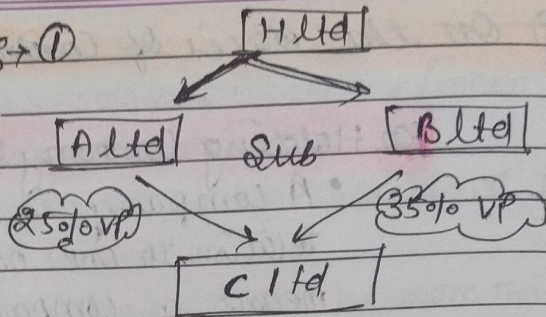 → ①
H ltd
A ltd Sub B ltd
25% VP 35% VP
C ltd